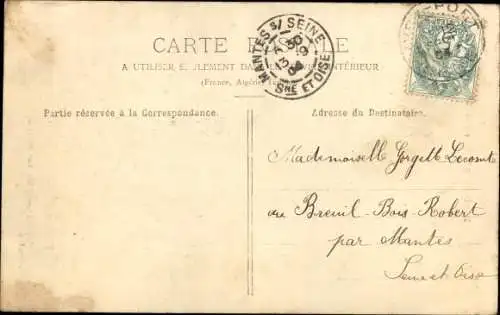 CARTE POSTALE
A UTILISER SEULEMENT DANS LE SERVICE INTÉRIEUR
(France, Algérie
MANTES S/ SEINE
13
Sne ET OISE
Partie réservée à la Correspondance.
Adresse du Destinataire.
Mademoiselle Lecomte
au Breuil-Bois-Robert
par Mantes
Seine et Oise